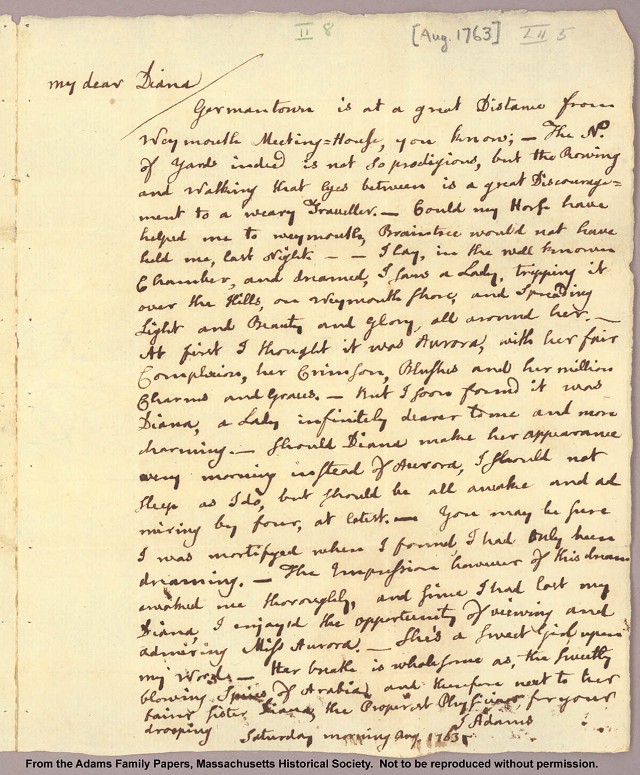 II 8
[Aug. 1763] LII 5
my dear Diana
Germantown is at a great Distance from
Weymouth Meeting=House, you know; — The No.
of Yards indeed is not so prodigious, but the Rowing
and Walking that lyes between is a great Discourage=
ment to a weary Traveller. — Could my Horse have
helped me to weymouth, Braintree would not have
held me, last Night. — — I lay, in the well known
Chamber, and dreamed, I saw a Lady, tripping it
over the Hills, on Weymouth shore, and Spreading
Light and Beauty and Glory, all around her. —
At first I thought it was Aurora, with her fair
Complexion, her Crimson, Blushes and her million
Charms and Graces. — But I soon found it was
Diana, a Lady infinitely dearer to me and more
charming. — Should Diana make her appearance
every morning instead of Aurora, I should not
sleep as I do, but should be all awake and ad
miring by four, at latest. — You may be sure
I was mortifyed when I found, I had only been
dreaming. — The Impression however of this dream
awaked me thoroughly, and since I had lost my
Diana, I enjoy'd the opportunity of viewing and
admiring Miss Aurora. — She's a sweet Girl, upon
my Word. — Her breath is wholesome as, the sweetly
blowing Spices of Arabia, and therefore next to her
fairer sister Diana, the Properest Physician, for your
drooping J Adams
Saturday morning Aug. 1763
From the Adams Family Papers, Massachusetts Historical Society. Not to be reproduced without permission.